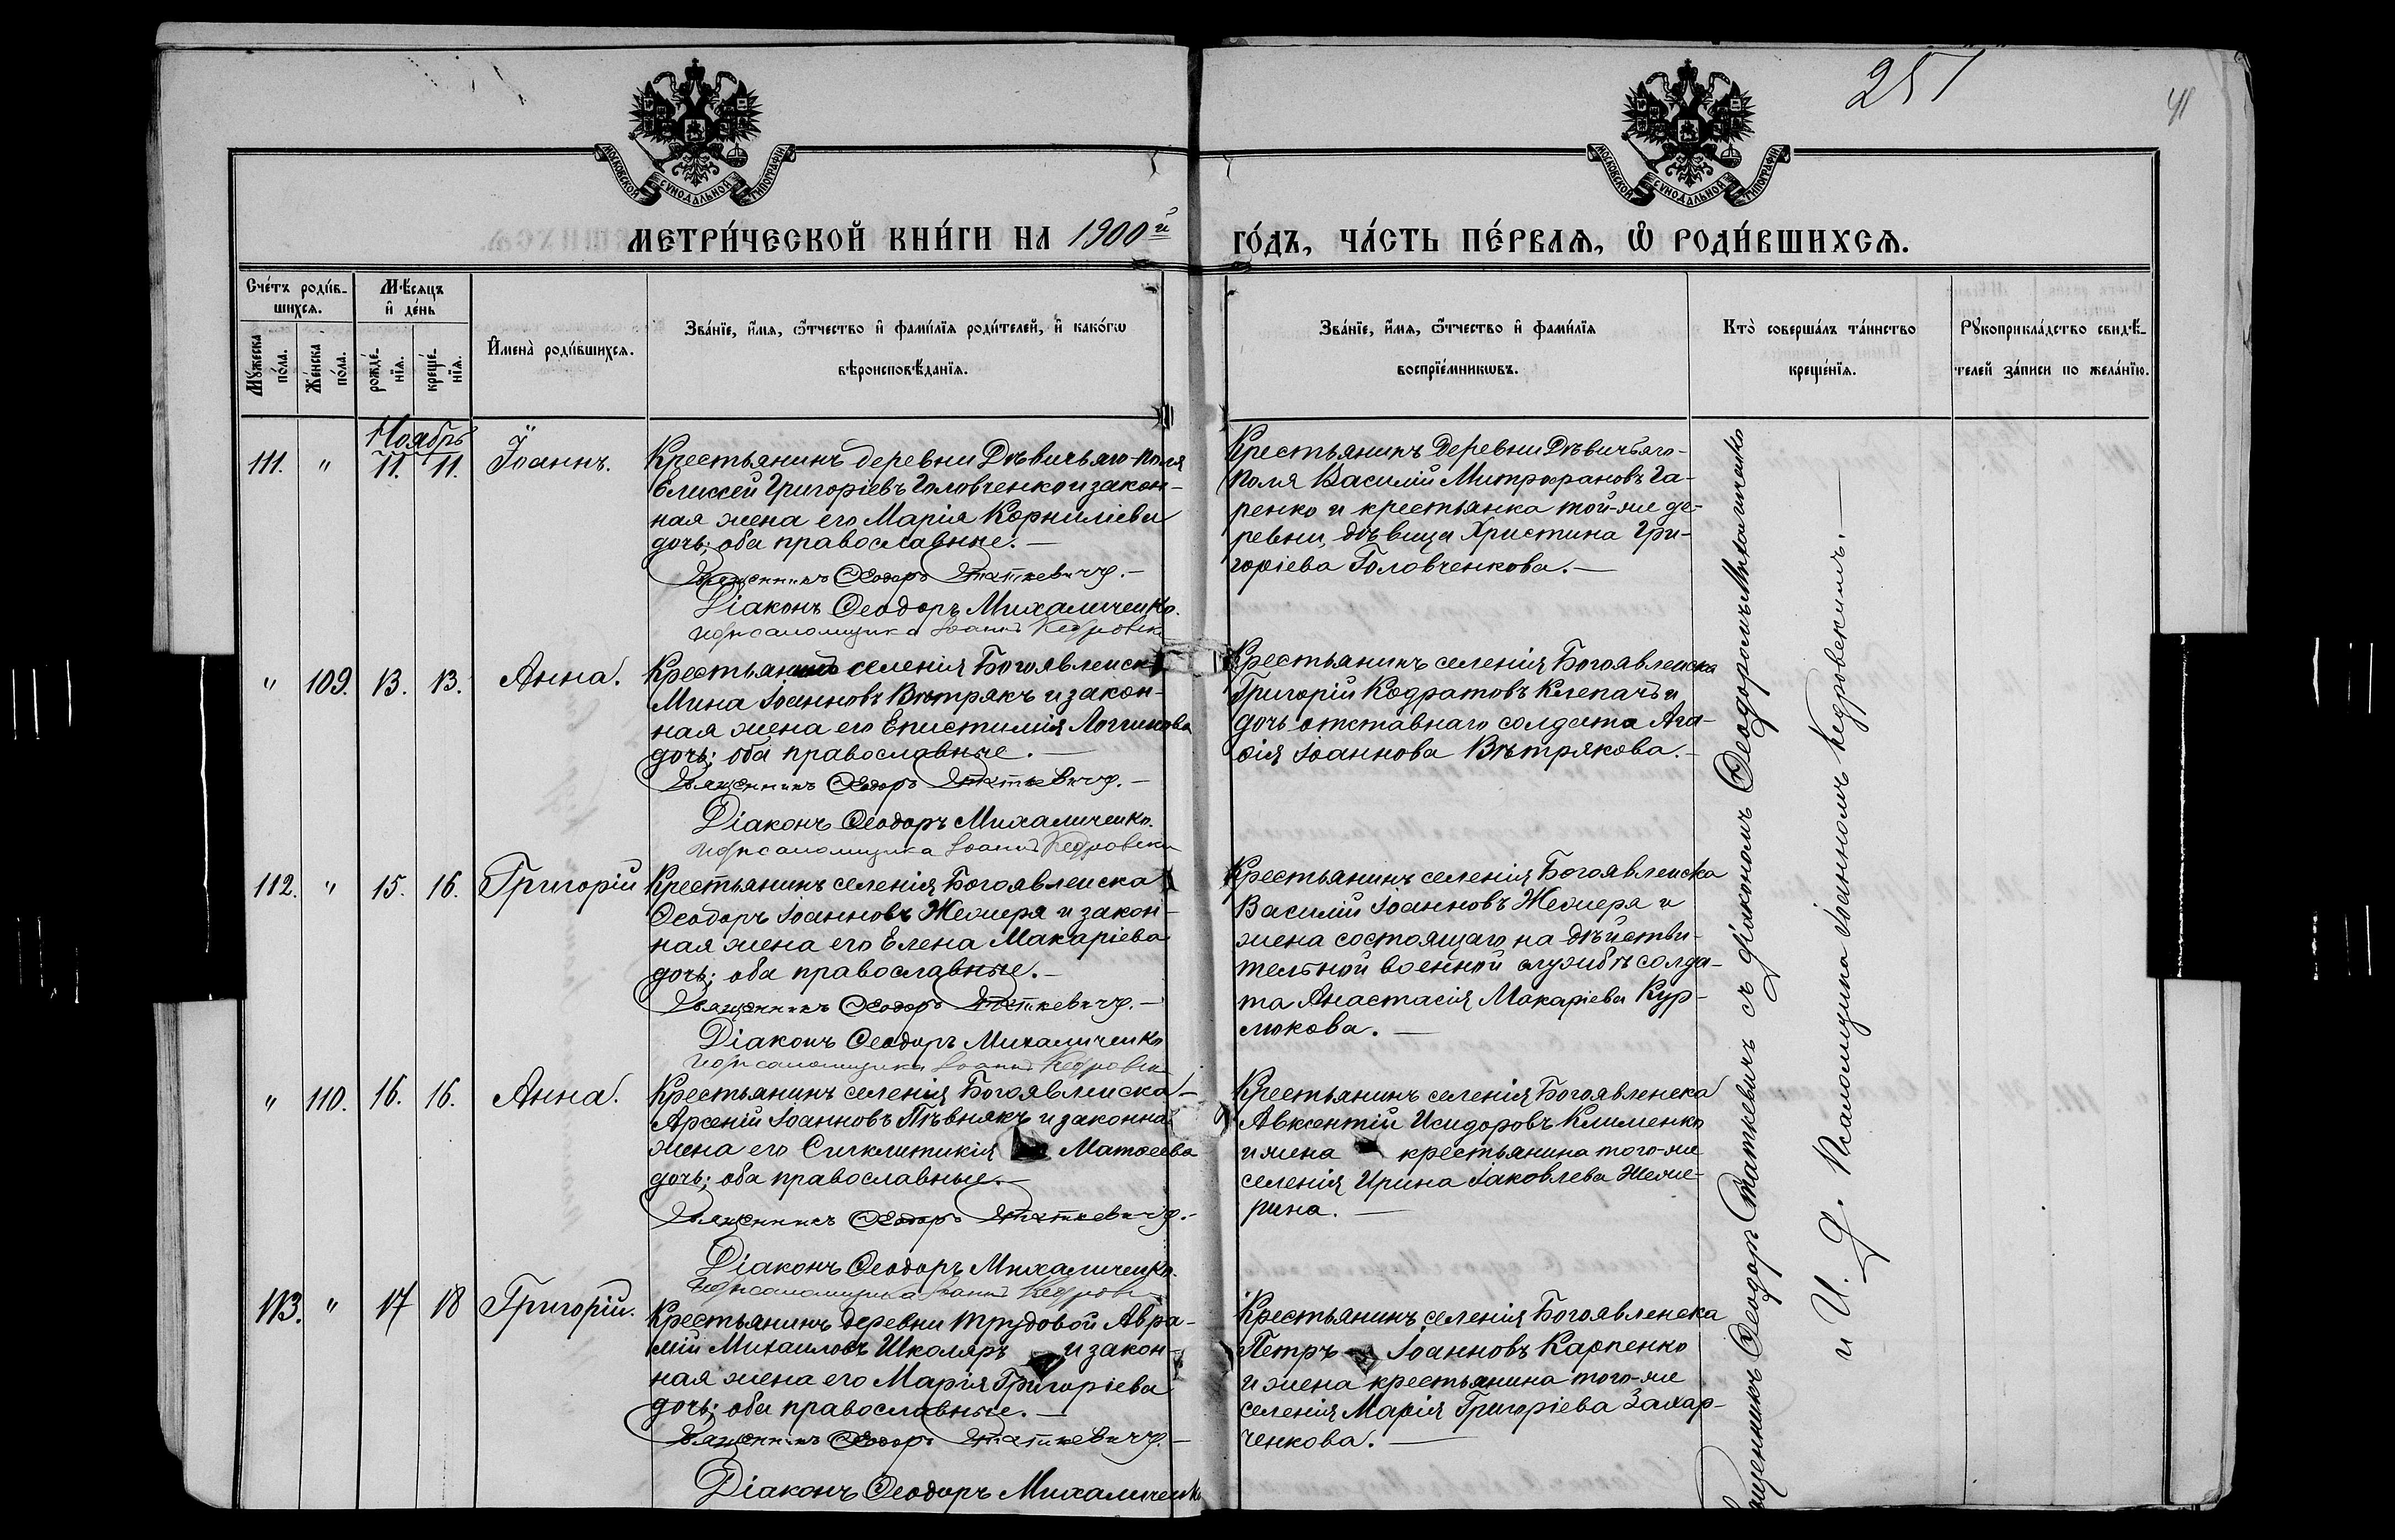 251
41
МОСКОВСКОЙ СУНОДАЛЬНОЙ ТИПОГРАФІИ
МОСКОВСКОЙ СУНОДАЛЬНОЙ ТИПОГРАФІИ
МЕТРИ́ЧЕСКОЙ КНИ́ГИ НА 1900й
ГО́ДЪ, ЧА́СТЬ ПЕ́РВАѦ, Ѽ РОДИ́ВШИХСѦ.
Сче́тъ роди́в-
шихсѧ.
Мѣ́сѧцъ
и҆ де́нь
Мꙋ́жеска
по́ла.
Же́нска
по́ла.
рожде́-
нїѧ.
креще́-
нїѧ.
И҆мена̀ роди́вшихсѧ.
Зва́нїе, и҆́мѧ, ѻ҆́тчество и҆ фами́лїѧ роди́телей, и҆ како́гѡ
вѣроисповѣ́данїѧ.
Зва́нїе, и҆́мѧ, ѻ҆́тчество и҆ фами́лїѧ
воспрїе́мникѡвъ.
Кто̀ соверша́лъ та́инство
креще́нїѧ.
Рꙋкоприкла́дство свидѣ́-
телей за́писи по жела́нїю.
Ноябрь
111. " 11. 11. Іоаннъ.
Крестьянинъ деревни Дѣвичьяго-поля
Елиссей Григоріевъ Головченко и закон-
ная жена его Марія Корниліева
дочь; оба православные. —
Священникъ Ѳеодоръ Статкевичъ. —
Діаконъ Ѳеодоръ Михаличенко.
И. д. псаломщика Іоаннъ Кедровскій
Крестьянинъ деревни Дѣвичьяго-
поля Василій Митрофановъ Га-
ренко и крестьянка той-же де-
ревни, дѣвица Христина Гри-
горіева Головченкова. —
" 109. 13. 13. Анна.
Крестьянинъ селенія Богоявленска
Мина Іоанновъ Вѣтрякъ и закон-
ная жена его Епистимія Логгинова
дочь; оба православные. —
Священникъ Ѳеодоръ Статкевичъ. —
Діаконъ Ѳеодоръ Михаличенко.
И. д. псаломщика Іоаннъ Кедровскій
Крестьянинъ селенія Богоявленска
Григорій Кодратовъ Клепачъ и
дочь отставнаго солдата Ага-
ѳія Іоаннова Вѣтрякова. —
112. " 15. 16. Григорій
Крестьянинъ селенія Богоявленска
Ѳеодоръ Іоанновъ Жежеря и закон-
ная жена его Елена Макаріева
дочь; оба православные. —
Священникъ Ѳеодоръ Статкевичъ. —
Діаконъ Ѳеодоръ Михаличенко
И. д. псаломщика Іоаннъ Кедровскій
Крестьянинъ селенія Богоявленска
Василій Іоанновъ Жежеря и
жена состоящаго на дѣйстви-
тельной военной службѣ солда-
та Анастасія Макаріева Кур-
люкова. —
" 110. 16. 16. Анна.
Крестьянинъ селенія Богоявленска
Арсеній Іоанновъ Пѣвнякъ и законная
жена его Сигклитикія Матѳеева
дочь; оба православные. —
Священникъ Ѳеодоръ Статкевичъ. —
Діаконъ Ѳеодоръ Михаличенко.
И. д. псаломщика Іоаннъ Кедровскій
Крестьянинъ селенія Богоявленска
Авксентій Исидоровъ Клименко
и жена крестьянина того-же
селенія Ирина Іаковлева Жеже-
рина. —
113. " 17 18 Григорій.
Крестьянинъ деревни Трудовой Авра-
мій Михаиловъ Школяръ и закон-
ная жена его Марія Григоріева
дочь; оба православные. —
Священникъ Ѳеодоръ Статкевичъ. —
Діаконъ Ѳеодоръ Михаличенко
Крестьянинъ селенія Богоявленска
Петръ Іоанновъ Карпенко
и жена крестьянина того-же
селенія Марія Григоріева Захар-
ченкова. —
Священникъ Ѳеодоръ Статкевичъ съ діакономъ Ѳеодоромъ Михаличенко
и И. д. Псаломщика Іоанномъ Кедровскимъ. —